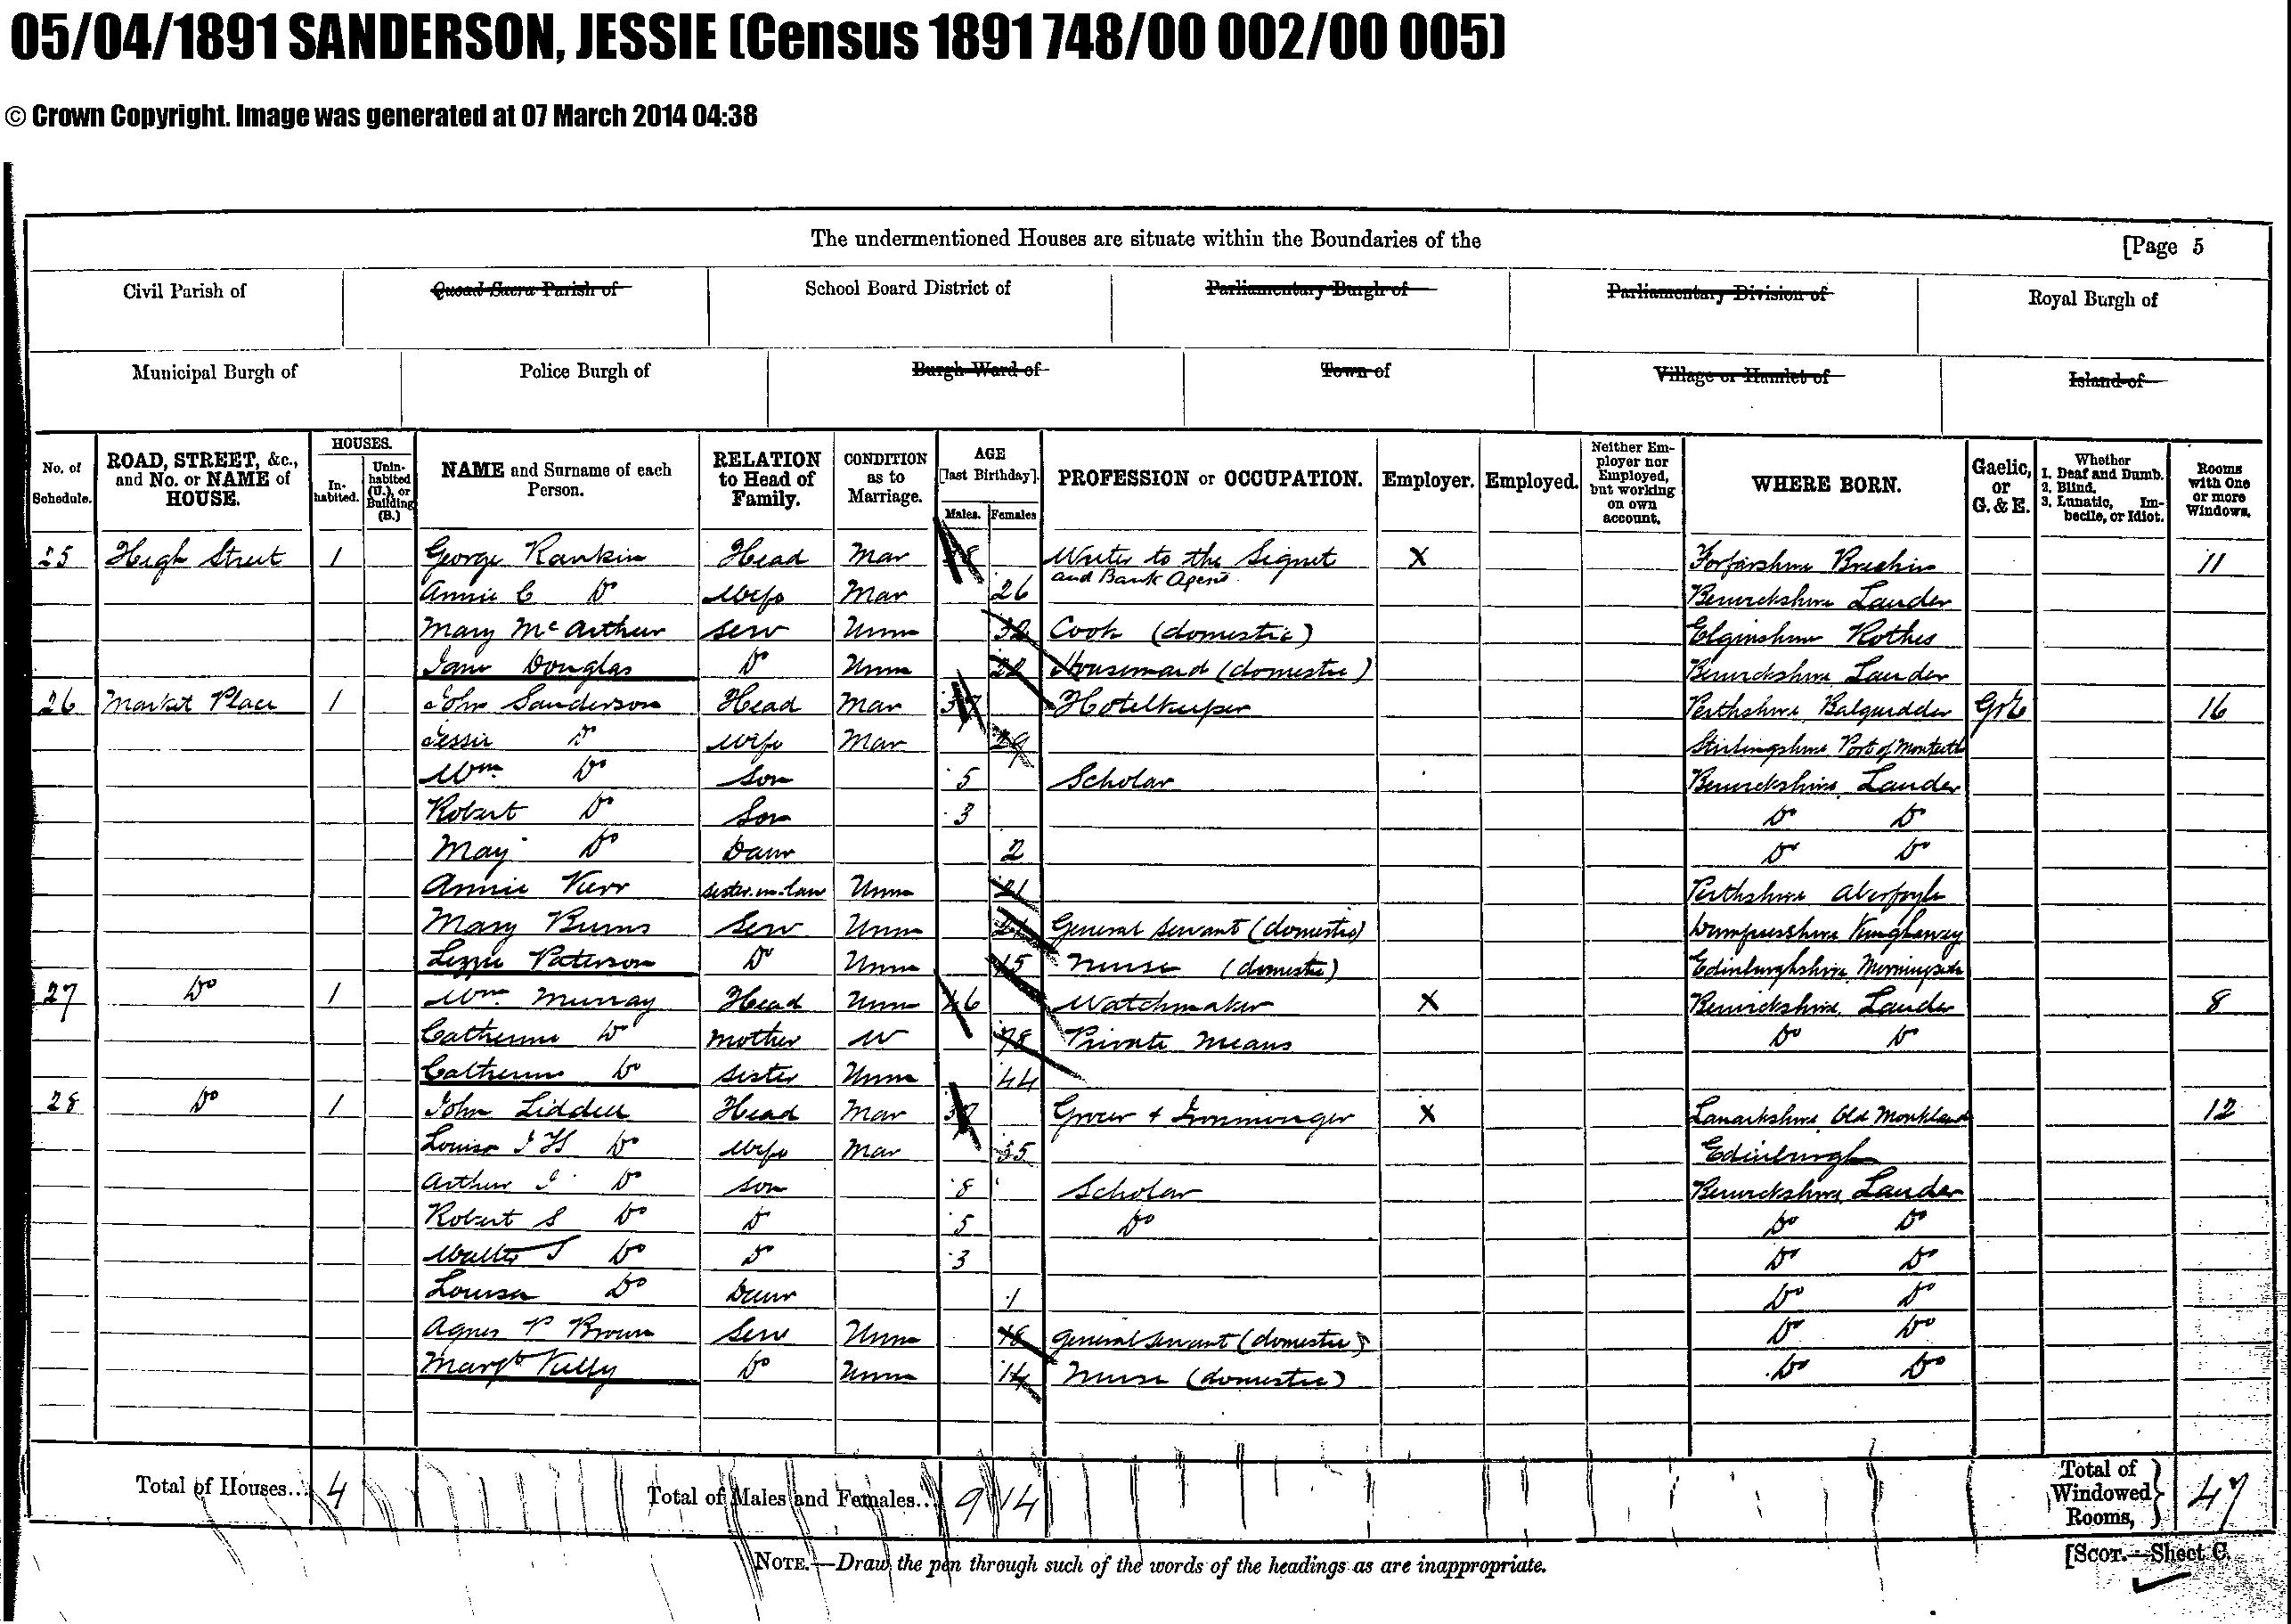 05/04/1891 SANDERSON, JESSIE (Census 1891 748/00 002/00 005)
© Crown Copyright. Image was generated at 07 March 2014 04:38
The undermentioned Houses are situate within the Boundaries of the [Page 5
Civil Parish of Quoad Sacra Parish of School Board District of Parliamentary Burgh of Parliamentary Division of Royal Burgh of
Municipal Burgh of Police Burgh of Burgh Ward of Town of Village or Hamlet of Island of
No. of Schedule. ROAD, STREET, &c., and No. or NAME of HOUSE. HOUSES. Inhabited. Uninhabited (U.), or Building (B.) NAME and Surname of each Person. RELATION to Head of Family. CONDITION as to Marriage. AGE [last Birthday]. Males. Females PROFESSION or OCCUPATION. Employer. Employed. Neither Employer nor Employed, but working on own account. WHERE BORN. Gaelic, or G. & E. Whether 1. Deaf and Dumb. 2. Blind. 3. Lunatic, Imbecile, or Idiot. Rooms with One or more Windows.
25 High Street 1 George Rankin Head Mar Writer to the Signet X Forfarshire Brechin 11
and Bank Agent
Annie C Do Wife Mar 26 Berwickshire Lauder
Mary McArthur Serv Unm 32 Cook (domestic) Elginshire Rothes
Jane Douglas Do Unm 22 Housemaid (domestic) Berwickshire Lauder
26 Market Place 1 John Sanderson Head Mar 37 Hotelkeeper Perthshire Balquidder G&E 16
Jessie Do Wife Mar 29 Stirlingshire Port of Monteith
Wm Do Son 5 Scholar Berwickshire Lauder
Robert Do Son 3 Do Do
May Do Daur 2 Do Do
Annie Kerr Sister-in-law Unm 21 Perthshire Aberfoyle
Mary Burns Serv Unm General Servant (domestic) Dumfriesshire
Lizzie Paterson Do Unm 15 Nurse (domestic) Edinburghshire Morningside
27 Do 1 Wm Murray Head Unm 46 Watchmaker X Berwickshire Lauder 8
Catherine Do Mother W 78 Private Means Do Do
Catherine Do Sister Unm 44
28 Do 1 John Liddell Head Mar Grocer & Ironmonger X Lanarkshire Old Monkland 12
Louisa J H Do Wife Mar 35 Edinburgh
Arthur J Do Son 8 Scholar Berwickshire Lauder
Robert S Do Do 5 Do Do Do
Walter S Do Do 3 Do Do
Louisa Do Daur 1 Do Do
Agnes P Brown Serv Unm 18 General Servant (domestic) Do Do
Margt Kelly Do Unm 14 Nurse (domestic) Do Do
Total of Houses... 4 Total of Males and Females... 9 14 Total of Windowed Rooms, 47
NOTE.—Draw the pen through such of the words of the headings as are inappropriate. [Scot.—Sheet C.